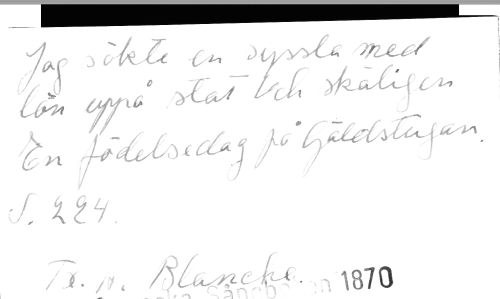 Jag sökte en syssla med
lön uppå stat och skäligen
En födelsedag på Gäldstugan.
S. 224.
Tr. n. Blanche.
Sångboken 1870